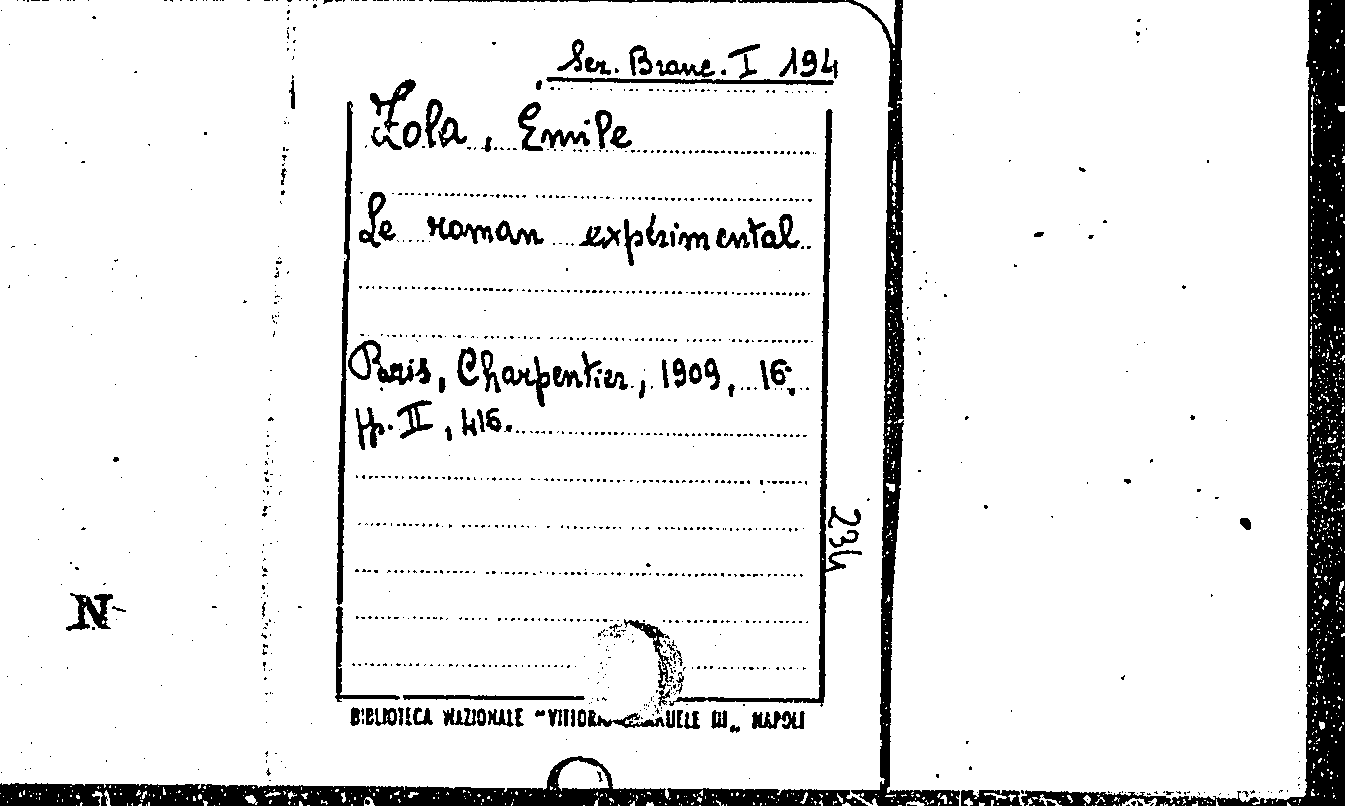 Ser. Branc. I 194
Zola, Emile
Le roman expérimental
Paris, Charpentier, 1909, 16.
pp. II, 416.
234
N
BIBLIOTECA NAZIONALE "VITTORIO EMANUELE III„ NAPOLI